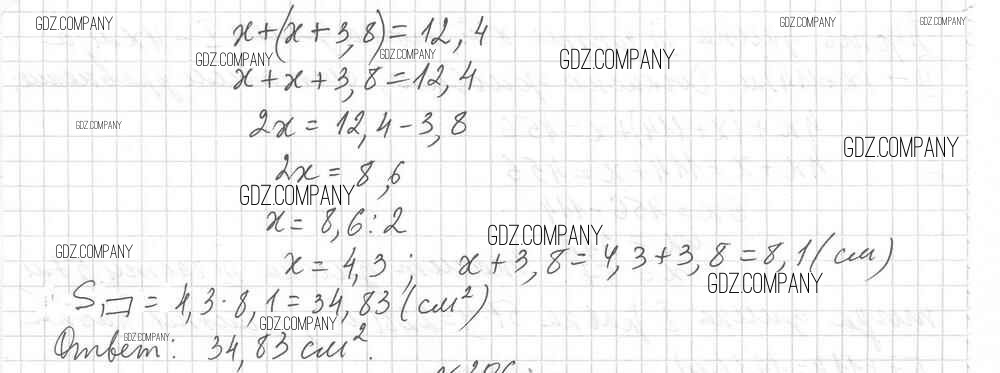 GDZ.COMPANY GDZ.COMPANY GDZ.COMPANY
x+(x+3,8)=12,4
GDZ.COMPANY GDZ.COMPANY GDZ.COMPANY
x+x+3,8=12,4
GDZ.COMPANY
2x=12,4-3,8
GDZ.COMPANY
2x=8,6
GDZ.COMPANY
x=8,6:2
GDZ.COMPANY
GDZ.COMPANY
x=4,3; x+3,8=4,3+3,8=8,1(см)
GDZ.COMPANY
S▭=4,3·8,1=34,83(см²)
GDZ.COMPANY
GDZ.COMPANY
Ответ: 34,83 см².